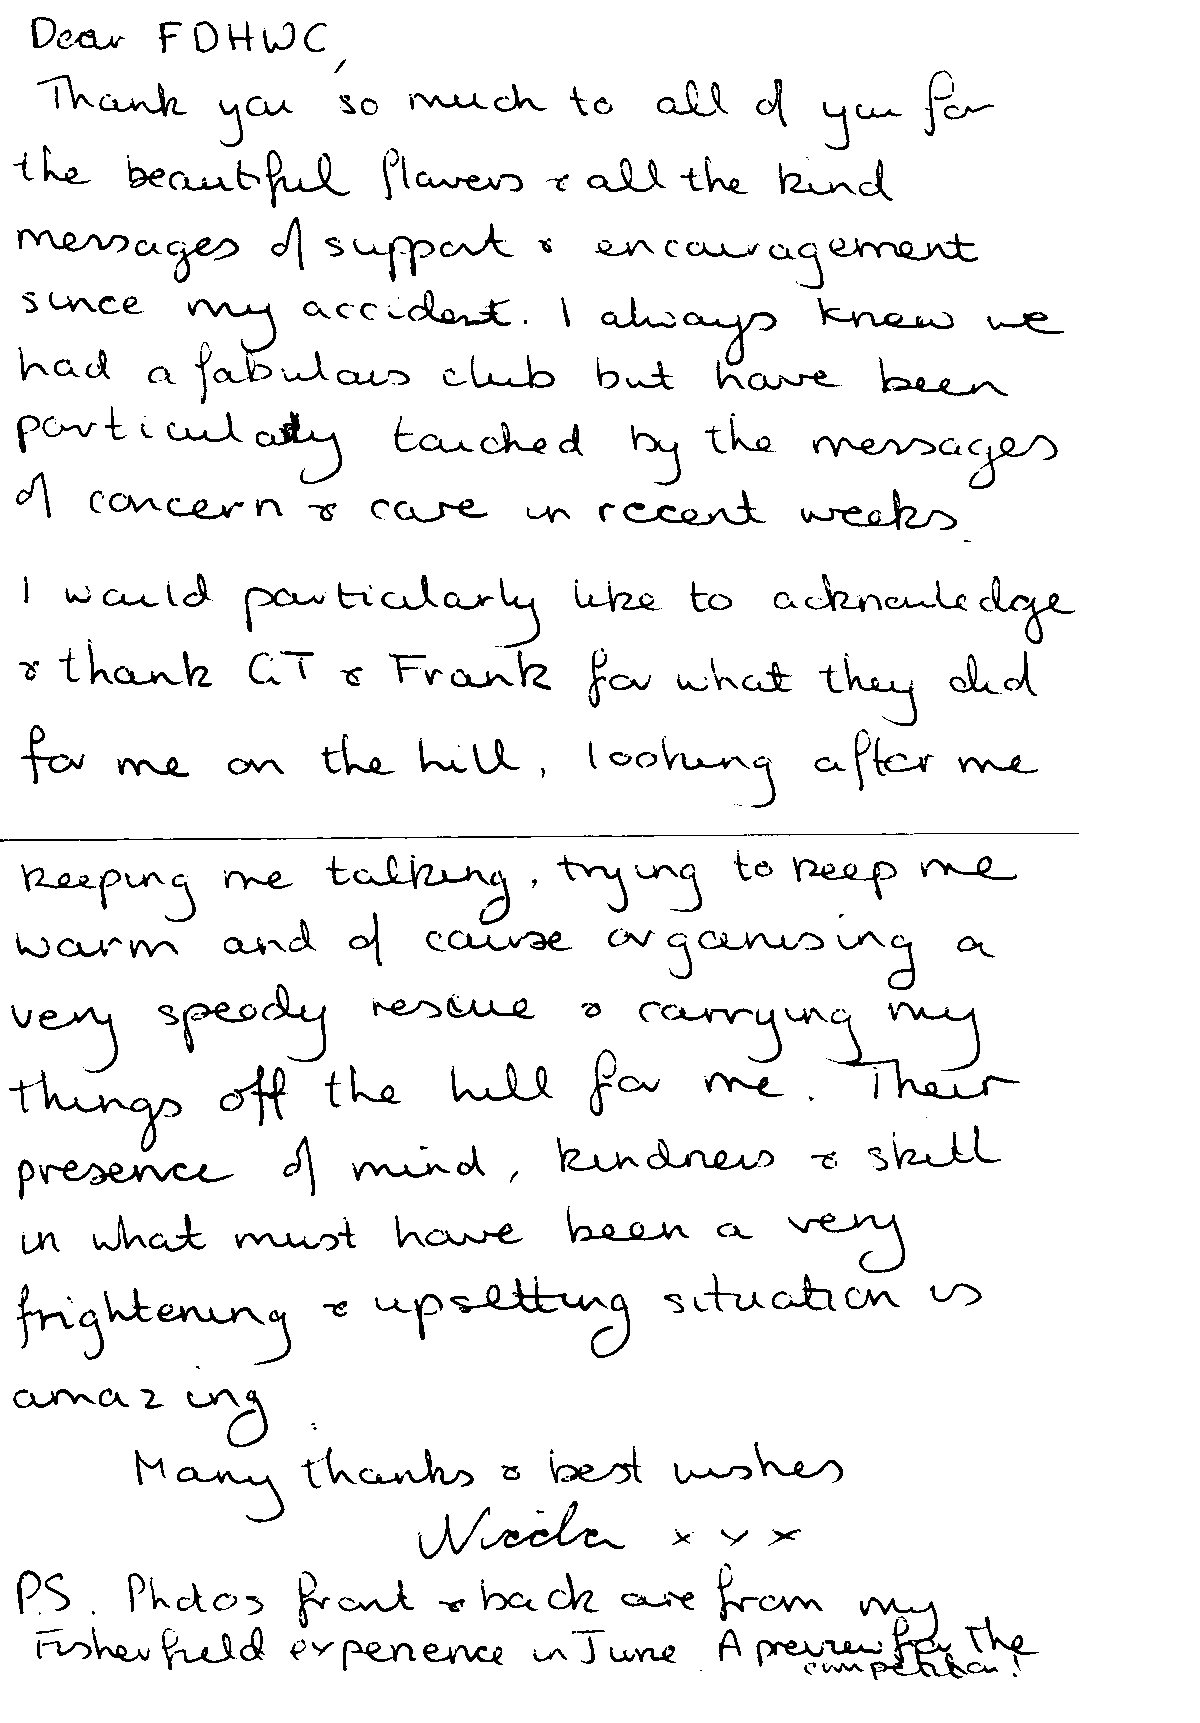 Dear FDHWC,
Thank you so much to all of you for
the beautiful flowers & all the kind
messages of support & encouragement
since my accident. I always knew we
had a fabulous club but have been
particularly touched by the messages
of concern & care in recent weeks.
I would particularly like to acknowledge
& thank GT & Frank for what they did
for me on the hill, looking after me
keeping me talking, trying to keep me
warm and of course organising a
very speedy rescue & carrying my
things off the hill for me. Their
presence of mind, kindness & skill
in what must have been a very
frightening & upsetting situation is
amazing.
Many thanks & best wishes
Nicola x x x
P.S. Photos front & back are from my
Fisherfield experience in June. A preview for the
competition!